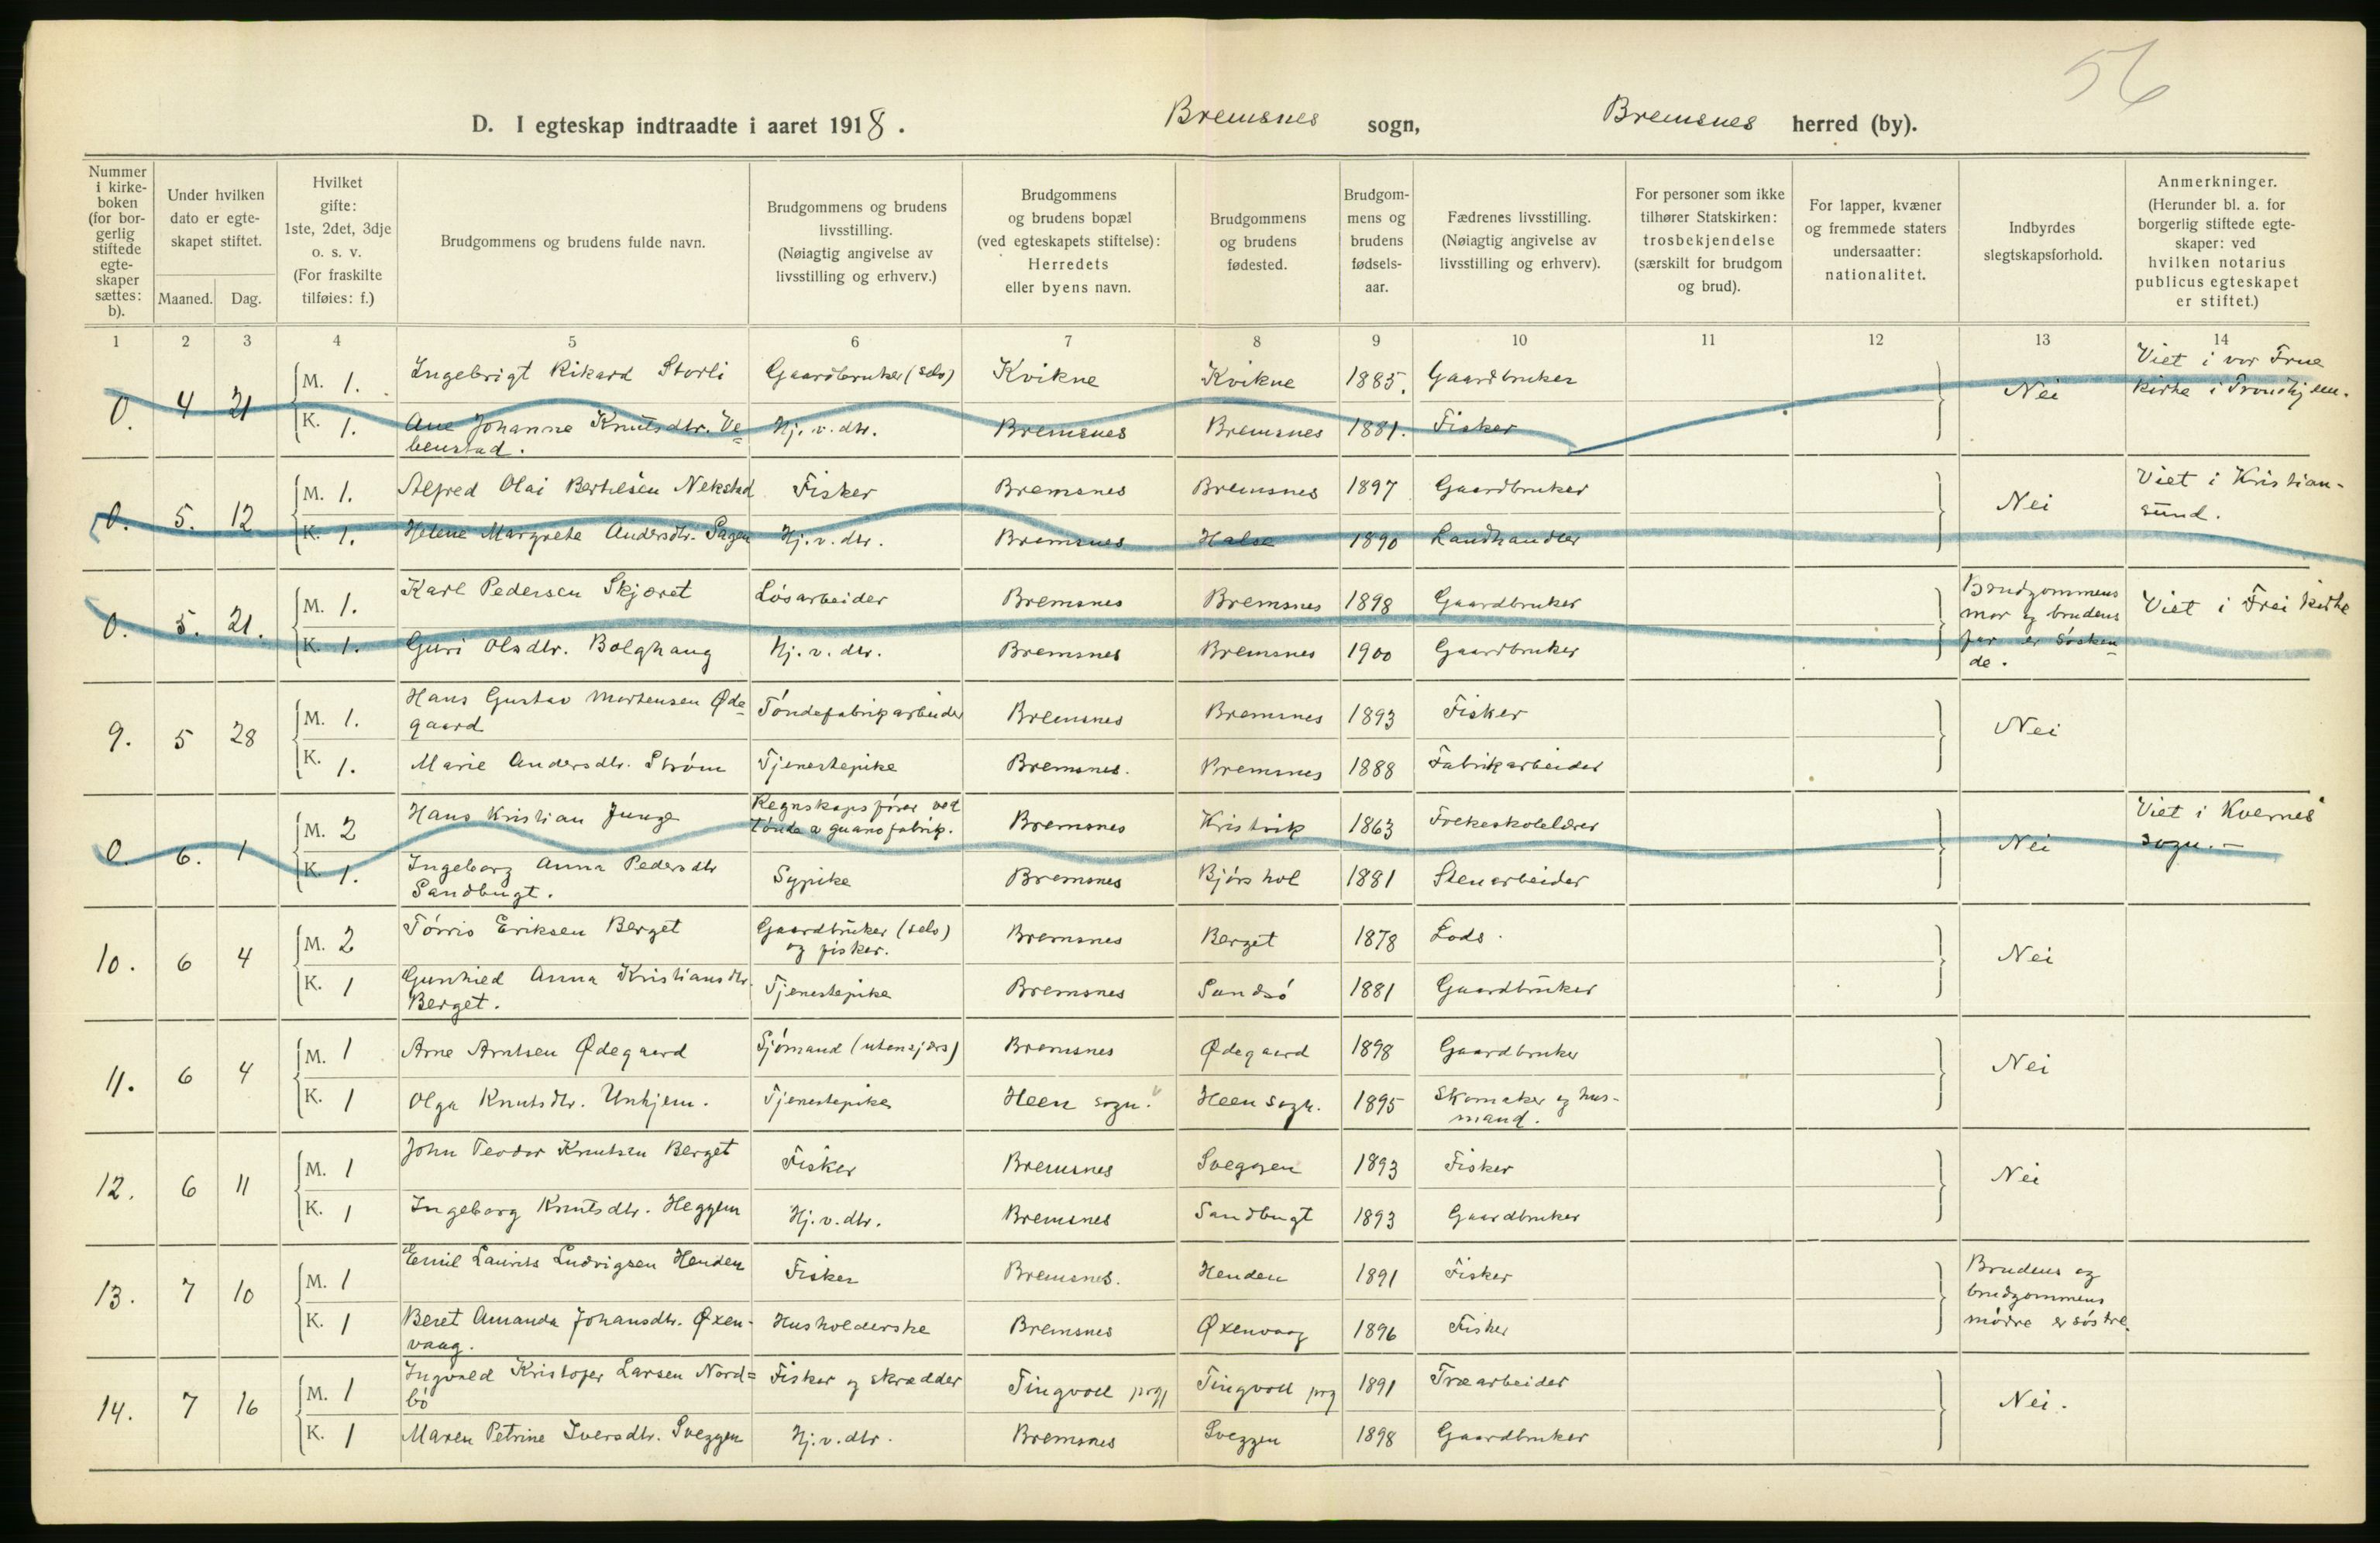 56
D. I egteskap indtraadte i aaret 1918. Bremsnes sogn, Bremsnes herred (by).
Nummer i kirkeboken (for borgerlig stiftede egteskaper sættes: b).
Under hvilken dato er egteskapet stiftet.
Maaned. Dag.
Hvilket gifte: 1ste, 2det, 3dje o. s. v. (For fraskilte tilføies: f.)
Brudgommens og brudens fulde navn.
Brudgommens og brudens livsstilling. (Nøiagtig angivelse av livsstilling og erhverv.)
Brudgommens og brudens bopæl (ved egteskapets stiftelse): Herredets eller byens navn.
Brudgommens og brudens fødested.
Brudgommens og brudens fødselsaar.
Fædrenes livsstilling. (Nøiagtig angivelse av livsstilling og erhverv).
For personer som ikke tilhører Statskirken: trosbekjendelse (særskilt for brudgom og brud).
For lapper, kvæner og fremmede staters undersaatter: nationalitet.
Indbyrdes slegtskapsforhold.
Anmerkninger. (Herunder bl. a. for borgerlig stiftede egteskaper: ved hvilken notarius publicus egteskapet er stiftet.)
1 2 3 4 5 6 7 8 9 10 11 12 13 14
0. 4 21 M. 1. Ingebrigt Rikard Storli Gaardbruker (selv) Kvikne Kvikne 1885. Gaardbruker Nei Viet i vor Frue kirke i Trondhjem.
K. 1. Ane Johanna Knutsdtr. Vebenstad. Hj. v. dtr. Bremsnes Bremsnes 1881. Fisker
0. 5. 12 M. 1. Alfred Olai Berthesen Nekstad Fisker Bremsnes Bremsnes 1897 Gaardbruker Nei Viet i Kristiansund.
K. 1. Helene Margrete Andersdtr. Sagen Hj. v. dtr. Bremsnes Halse 1890 Landhandler
0. 5. 21. M. 1. Karl Pedersen Skjøret Løsarbeider Bremsnes Bremsnes 1898 Gaardbruker Brudgommens mor og brudens far er søskende. Viet i Frei kirke
K. 1. Guri Olsdtr. Bolghaug Hj. v. dtr. Bremsnes Bremsnes 1900 Gaardbruker
9. 5 28 M. 1. Hans Gustav Mortensen Ødegaard Tøndefabrikarbeider Bremsnes Bremsnes 1893 Fisker Nei
K. 1. Marie Andersdtr. Strøm Tjenestepike Bremsnes. Bremsnes 1888 Fabrikarbeider
0. 6. 1 M. 2 Hans Kristian Junge Regnskapsfører ved tønde & guanofabrik. Bremsnes Kristvik 1863 Folkeskolelærer Nei Viet i Kvernes sogn. —
K. 1. Ingeborg Anna Pedersdtr Sandbugt. Sypike Bremsnes Bjørshol 1881 Stenarbeider
10. 6 4 M. 2 Tørris Eriksen Berget Gaardbruker (selv) og fisker. Bremsnes Berget 1878 Lods. Nei
K. 1 Gunhild Anna Kristiansdtr. Berget. Tjenestepike Bremsnes Sandsø 1881 Gaardbruker
11. 6 4 M. 1 Arne Arntsen Ødegaard Sjømand (utensjøs) Bremsnes Ødegaard 1898 Gaardbruker Nei
K. 1 Olga Knutsdtr. Unhjem. Tjenestepike Heen sogn. Heen sogn. 1895 Skomaker og husmand.
12. 6 11 M. 1 John Teodor Knutsen Berget Fisker Bremsnes Sveggen 1893 Fisker Nei
K. 1 Ingeborg Knutsdtr. Heggem Hj. v. dtr. Bremsnes Sandbugt 1893 Gaardbruker
13. 7 10 M. 1 Emil Laurits Ludvigsen Henden Fisker Bremsnes. Henden 1891 Fisker Brudens og brudgommens mødre er søstre.
K. 1 Beret Amanda Johansdtr. Øxenvaag. Husholderske Bremsnes Øxenvaag 1896 Fisker
14. 7 16 M. 1 Ingvald Kristofer Larsen Nordbø Fisker og skrædder Tingvoll prg Tingvoll prg 1891 Træarbeider Nei.
K. 1 Maren Petrine Iversdtr. Sveggen Hj. v. dtr. Bremsnes Sveggen 1898 Gaardbruker